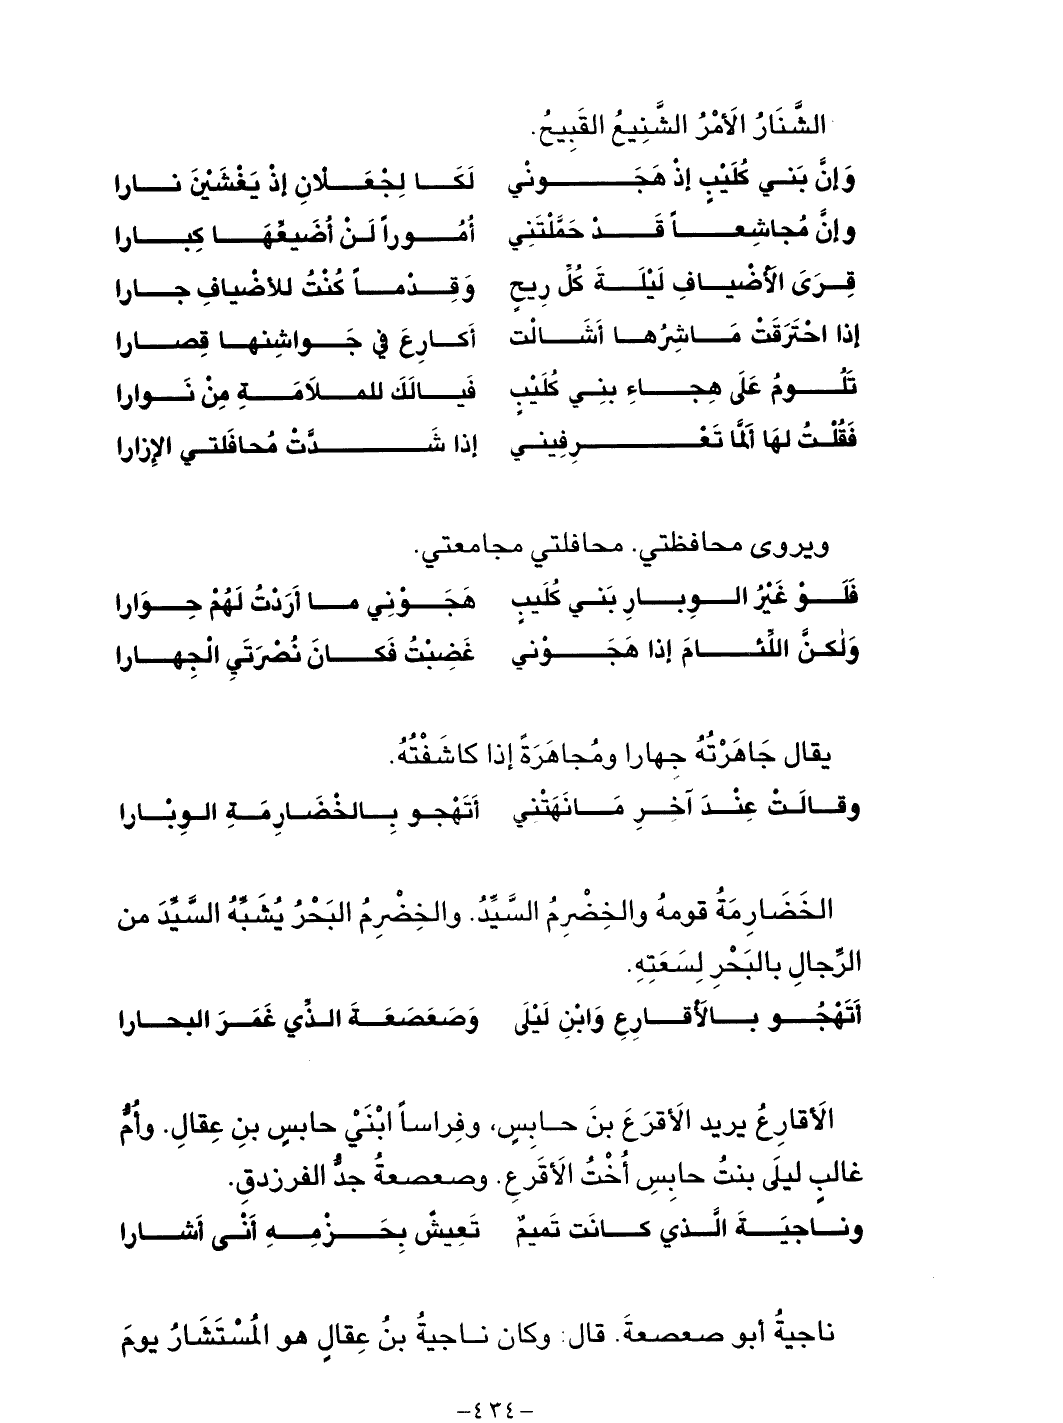 الشَّنَارُ الَأمْرُ الشَّنِيعُ القَبِيحُ.
وَإنَّ بَني كُلَيْبٍ إذْ هَجَوْني لَكَا لجِعْلَانِ إذْ يَغْشَيْنَ نارا
وإنَّ مُجاشِعاً قَدْ حَمَّلْتَنِي أمُوراً لَنْ أضَيعِّهَا كِبارا
قِرَىَ الَأضْيافِ لَيْلَةَ كُلِّ رِيحٍ وَقِدْماً كُنْتُ للاضْيافِ جارا
إذا احْتَرَقَتْ مَاشِرُها أشَالْت أكارِعَ في جَواشِنها قِصارا
تَلُومُ عَلَى هِجاءِ بنِي كُلَيْبٍ فَيالَكَ للملَامَةِ مِنْ نَوارا
فَقُلْتُ لهَا ألَمَّا تَعْرِفِيني إذا شَدَّتْ مُحافَلتي الإِزارا
ويروى محافظتي. محافلتي مجامعتي.
فَلَوْ غَيْرُ الوِبارِ بَني كُلَيبٍ هَجَوْنِي ما أرَدْتُ لَهُمْ حِوَارا
وَلٰكنَّ اللِّئامَ إذا هَجَوْني غَضِبْتُ فَكانَ نُصْرَتَيِ الْجِهارا
يقال جَاهَرْتُهُ جِهارا ومُجاهَرَةً إذا كاشَفْتُهُ.
وقالَتْ عِنْدَ آخِرِ مَانَهَتْني أتَهْجو بِالخْضَارِمَةِ الوِبْارا
الخَضَارِمَةُ قومهُ والخِضْرِمُ السَّيِّدُ. والخِضْرِمُ البَحْرُ يُشَبِّهُ السَّيِّدَ من
الرِّجالِ بالبَحْرِ لِسَعَتِهِ.
أتَهْجُو بالَأقارِعِ وَابْنِ لَيْلَى وَصَعَصَعَةَ الذِّي غَمَرَ البحارا
الَأقارِعُ يريد الَأقرَعَ بنَ حابِسٍ، وفِراساً ابْنَيْ حابسٍ بنِ عِقالِ. وأمُّ
غالبٍ ليلَى بنتُ حابسِ أخْتُ الَأقَرعِ. وصعصعةُ جدُّ الفرزدقِ.
وناجيَةَ الَّذي كانَت تَميمٌ تَعِيشُ بِحَزْمِهِ أنْى أشارا
ناجيةُ أبو صعصعةَ. قال: وكان ناجيةُ بنُ عِقالٍ هو المُسْتَشَارُ يومَ
-٤٣٤-